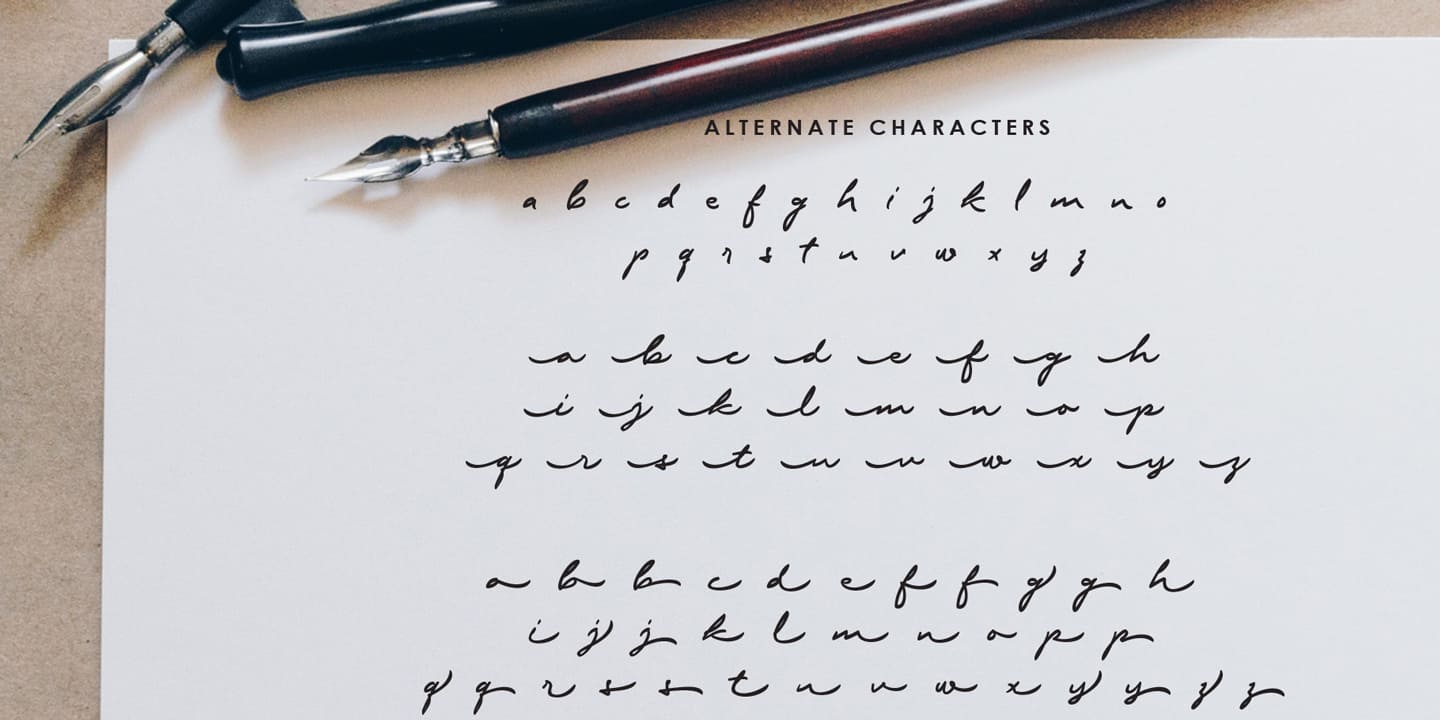 ALTERNATE CHARACTERS
a b c d e f g h i j k l m n o
p q r s t u v w x y z
a b c d e f g h
i j k l m n o p
q r s t u v w x y z
a b b c d e f f g g h
i j j k l m n o p p
q q r s s t u v w x y y z z